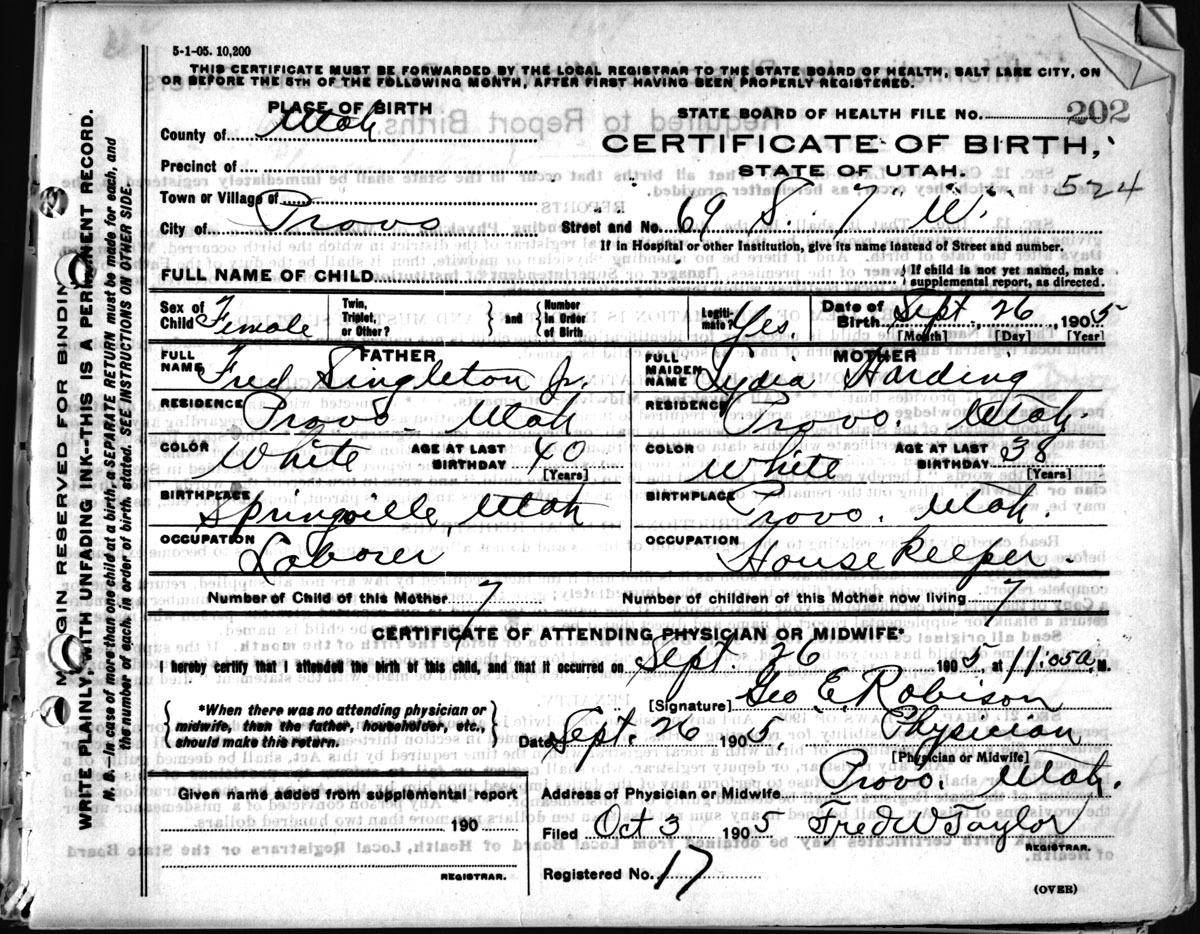 5-1-05. 10,200
THIS CERTIFICATE MUST BE FORWARDED BY THE LOCAL REGISTRAR TO THE STATE BOARD OF HEALTH, SALT LAKE CITY, ON
OR BEFORE THE 5TH OF THE FOLLOWING MONTH, AFTER FIRST HAVING BEEN PROPERLY REGISTERED.
PLACE OF BIRTH
County of Utah
Precinct of
Town or Village of
City of Provo
STATE BOARD OF HEALTH FILE NO. 202
CERTIFICATE OF BIRTH,
STATE OF UTAH.
524
Street and No. 69 S. 7" W.
If in Hospital or other Institution, give its name instead of Street and number.
FULL NAME OF CHILD
If child is not yet named, make
supplemental report, as directed.
Sex of Child Female
Twin, Triplet, or Other?
and
Number in Order of Birth
Legitimate? Yes.
Date of Birth Sept. 26, 1905
[Month] [Day] [Year]
FATHER
FULL NAME Fred Singleton Jr.
RESIDENCE Provo Utah
COLOR White AGE AT LAST BIRTHDAY 40 [Years]
BIRTHPLACE Springville, Utah
OCCUPATION Laborer
MOTHER
FULL MAIDEN NAME Lydia Harding
RESIDENCE Provo Utah.
COLOR White AGE AT LAST BIRTHDAY 38 [Years]
BIRTHPLACE Provo. Utah.
OCCUPATION House Keeper.
Number of Child of this Mother 7
Number of children of this Mother now living 7
CERTIFICATE OF ATTENDING PHYSICIAN OR MIDWIFE*
I hereby certify that I attended the birth of this child, and that it occurred on Sept. 26 1905, at 11:05 a M.
*When there was no attending physician or
midwife, then the father, householder, etc.,
should make this return.
[Signature] Geo. E. Robison
Date Sept. 26 1905. Physician
[Physician or Midwife]
Address of Physician or Midwife Provo. Utah.
Given name added from supplemental report
190
REGISTRAR.
Filed Oct 3 1905 Fred W Taylor
REGISTRAR.
Registered No. 17
(OVER)
MARGIN RESERVED FOR BINDING
WRITE PLAINLY, WITH UNFADING INK--THIS IS A PERMANENT RECORD.
N. B.--In case of more than one child at a birth, a SEPARATE RETURN must be made for each, and
the number of each, in order of birth, stated. SEE INSTRUCTIONS ON OTHER SIDE.